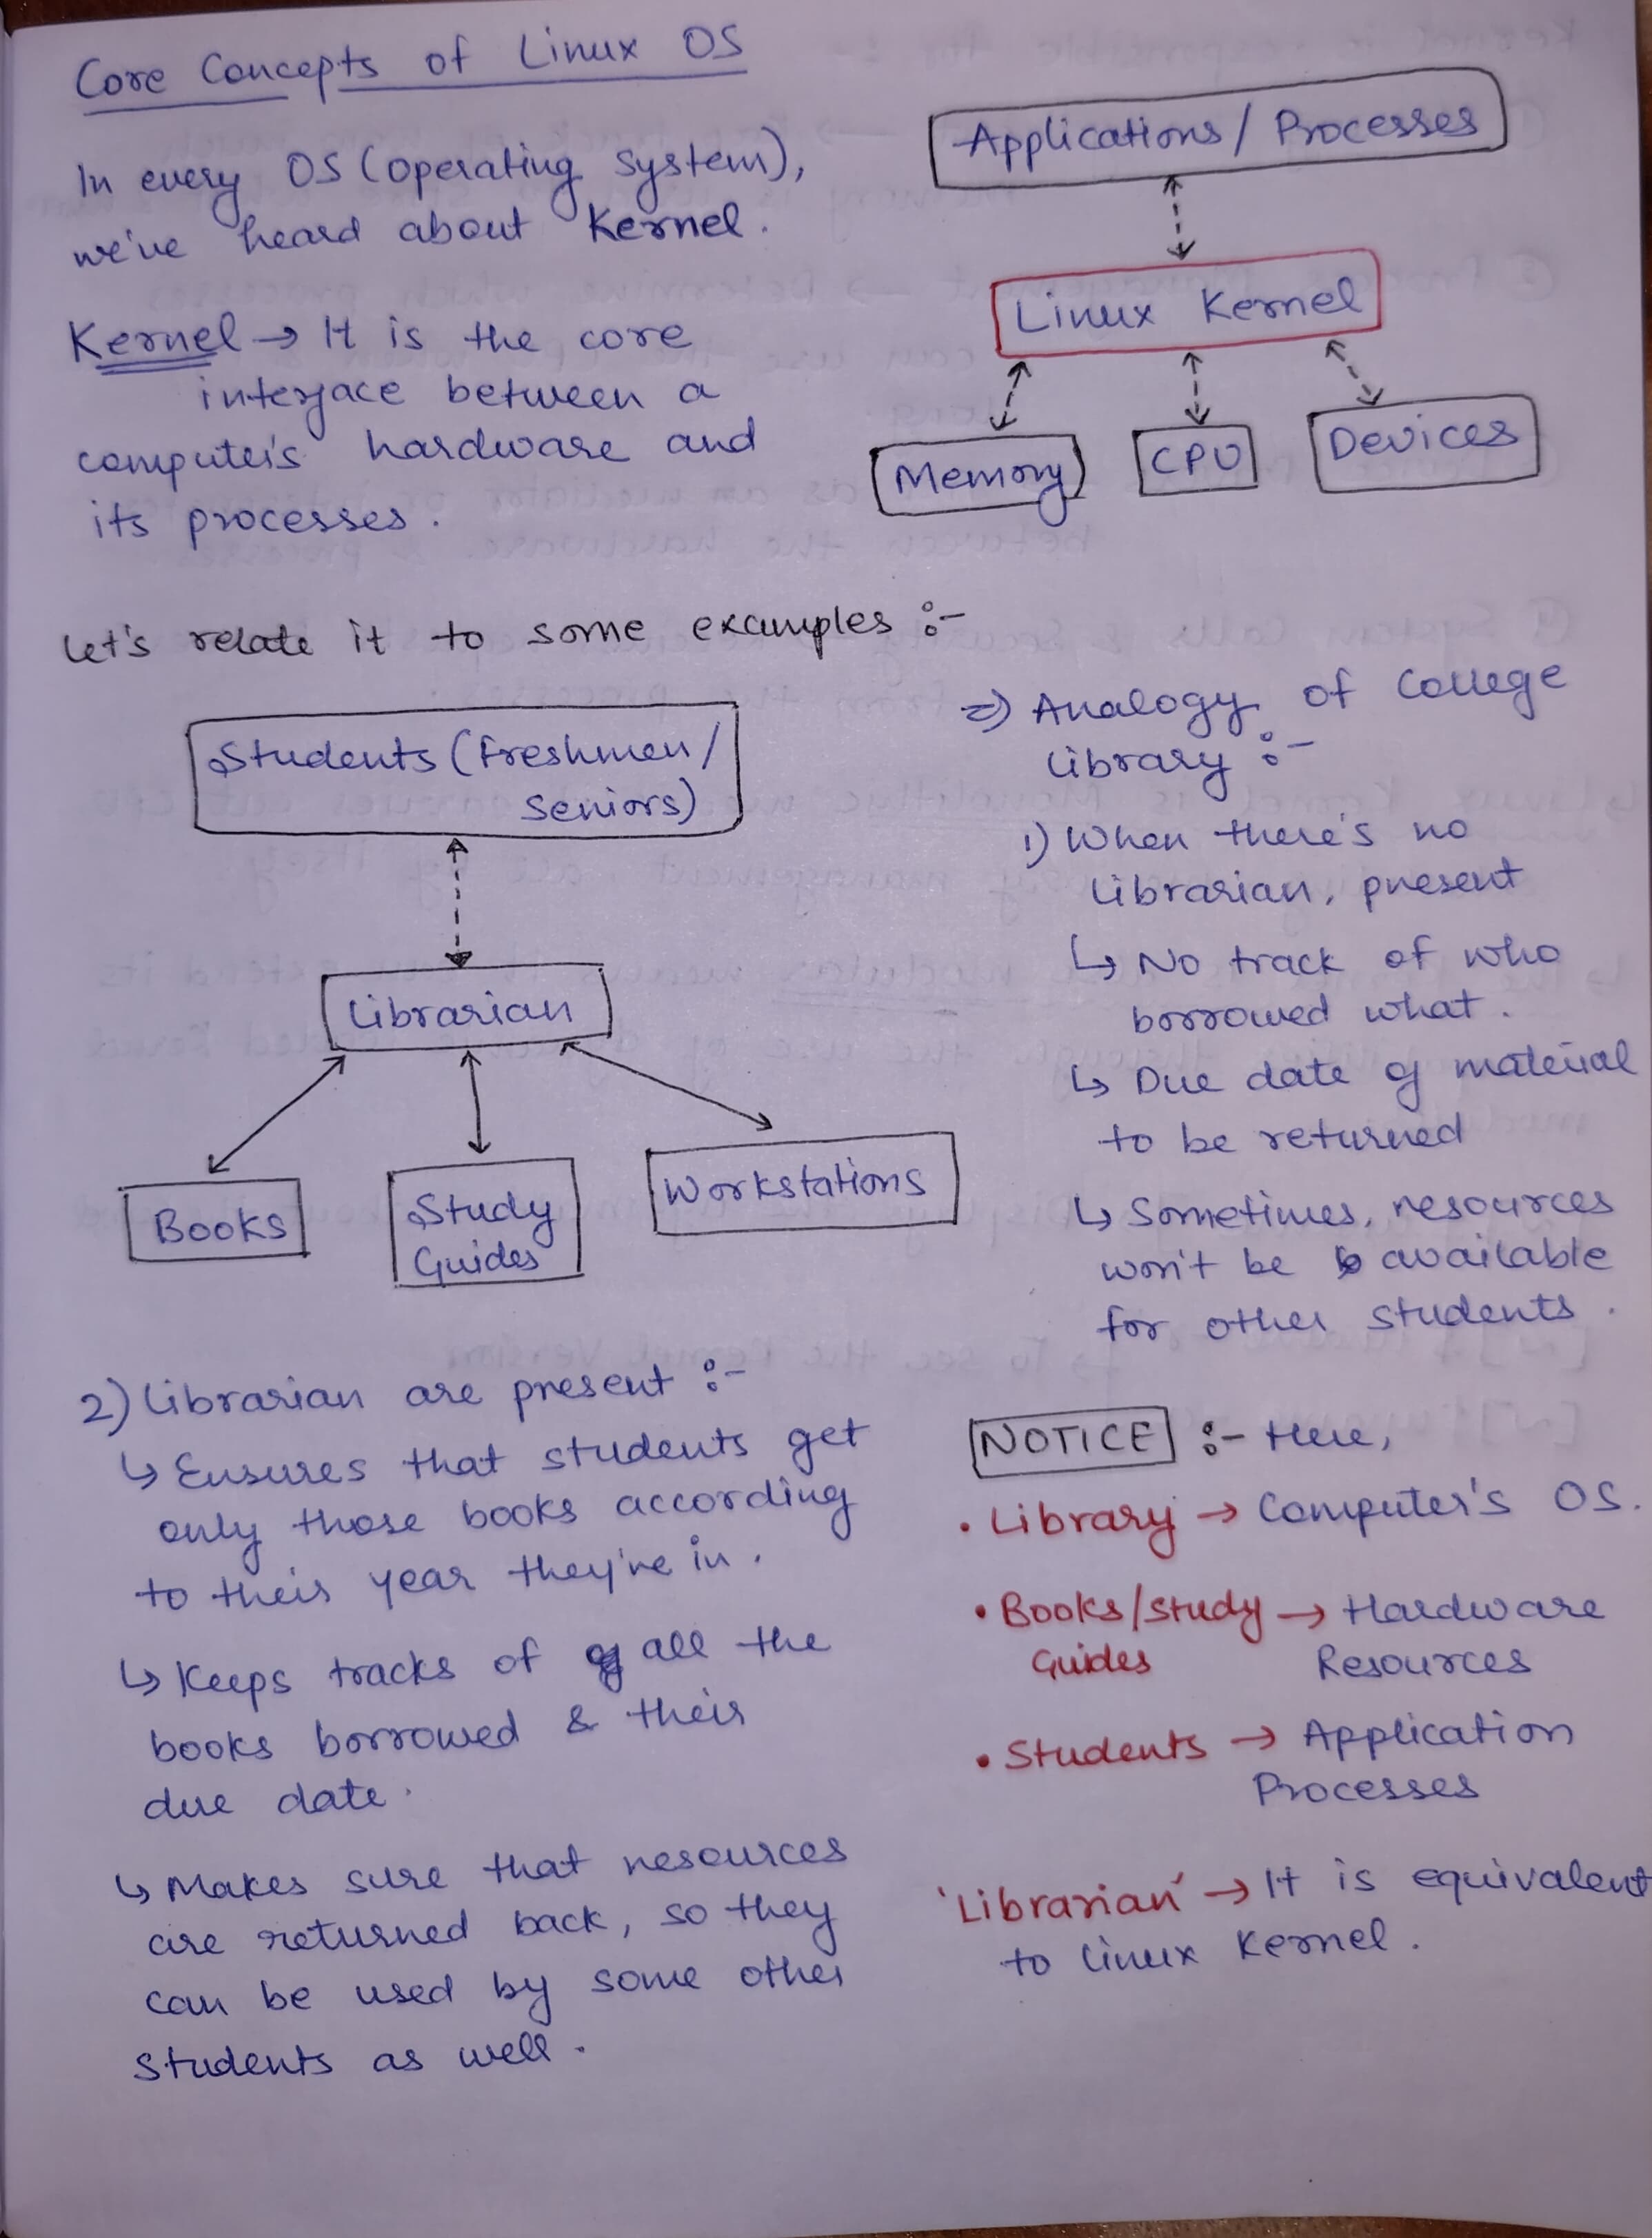 Core Concepts of Linux OS
In every OS (operating system),
we've heard about Kernel.
Kernel → It is the core
interface between a
computer's hardware and
its processes.
Applications / Processes
Linux Kernel
Memory
CPU
Devices
Let's relate it to some examples :-
Students (freshmen/
seniors)
Librarian
Books
Study
Guides
Workstations
⇒ Analogy of College
library :-
1) When there's no
librarian, present
↳ No track of who
borrowed what.
↳ Due date of material
to be returned
↳ Sometimes, resources
won't be available
for other students.
2) Librarian are present :-
↳ Ensures that students get
only those books according
to their year they're in.
↳ Keeps tracks of all the
books borrowed & their
due date.
↳ Makes sure that resources
are returned back, so they
can be used by some other
students as well.
NOTICE :- Here,
• Library → Computer's OS.
• Books/Study → Hardware
Guides Resources
• Students → Application
Processes
'Librarian' → It is equivalent
to Linux Kernel.